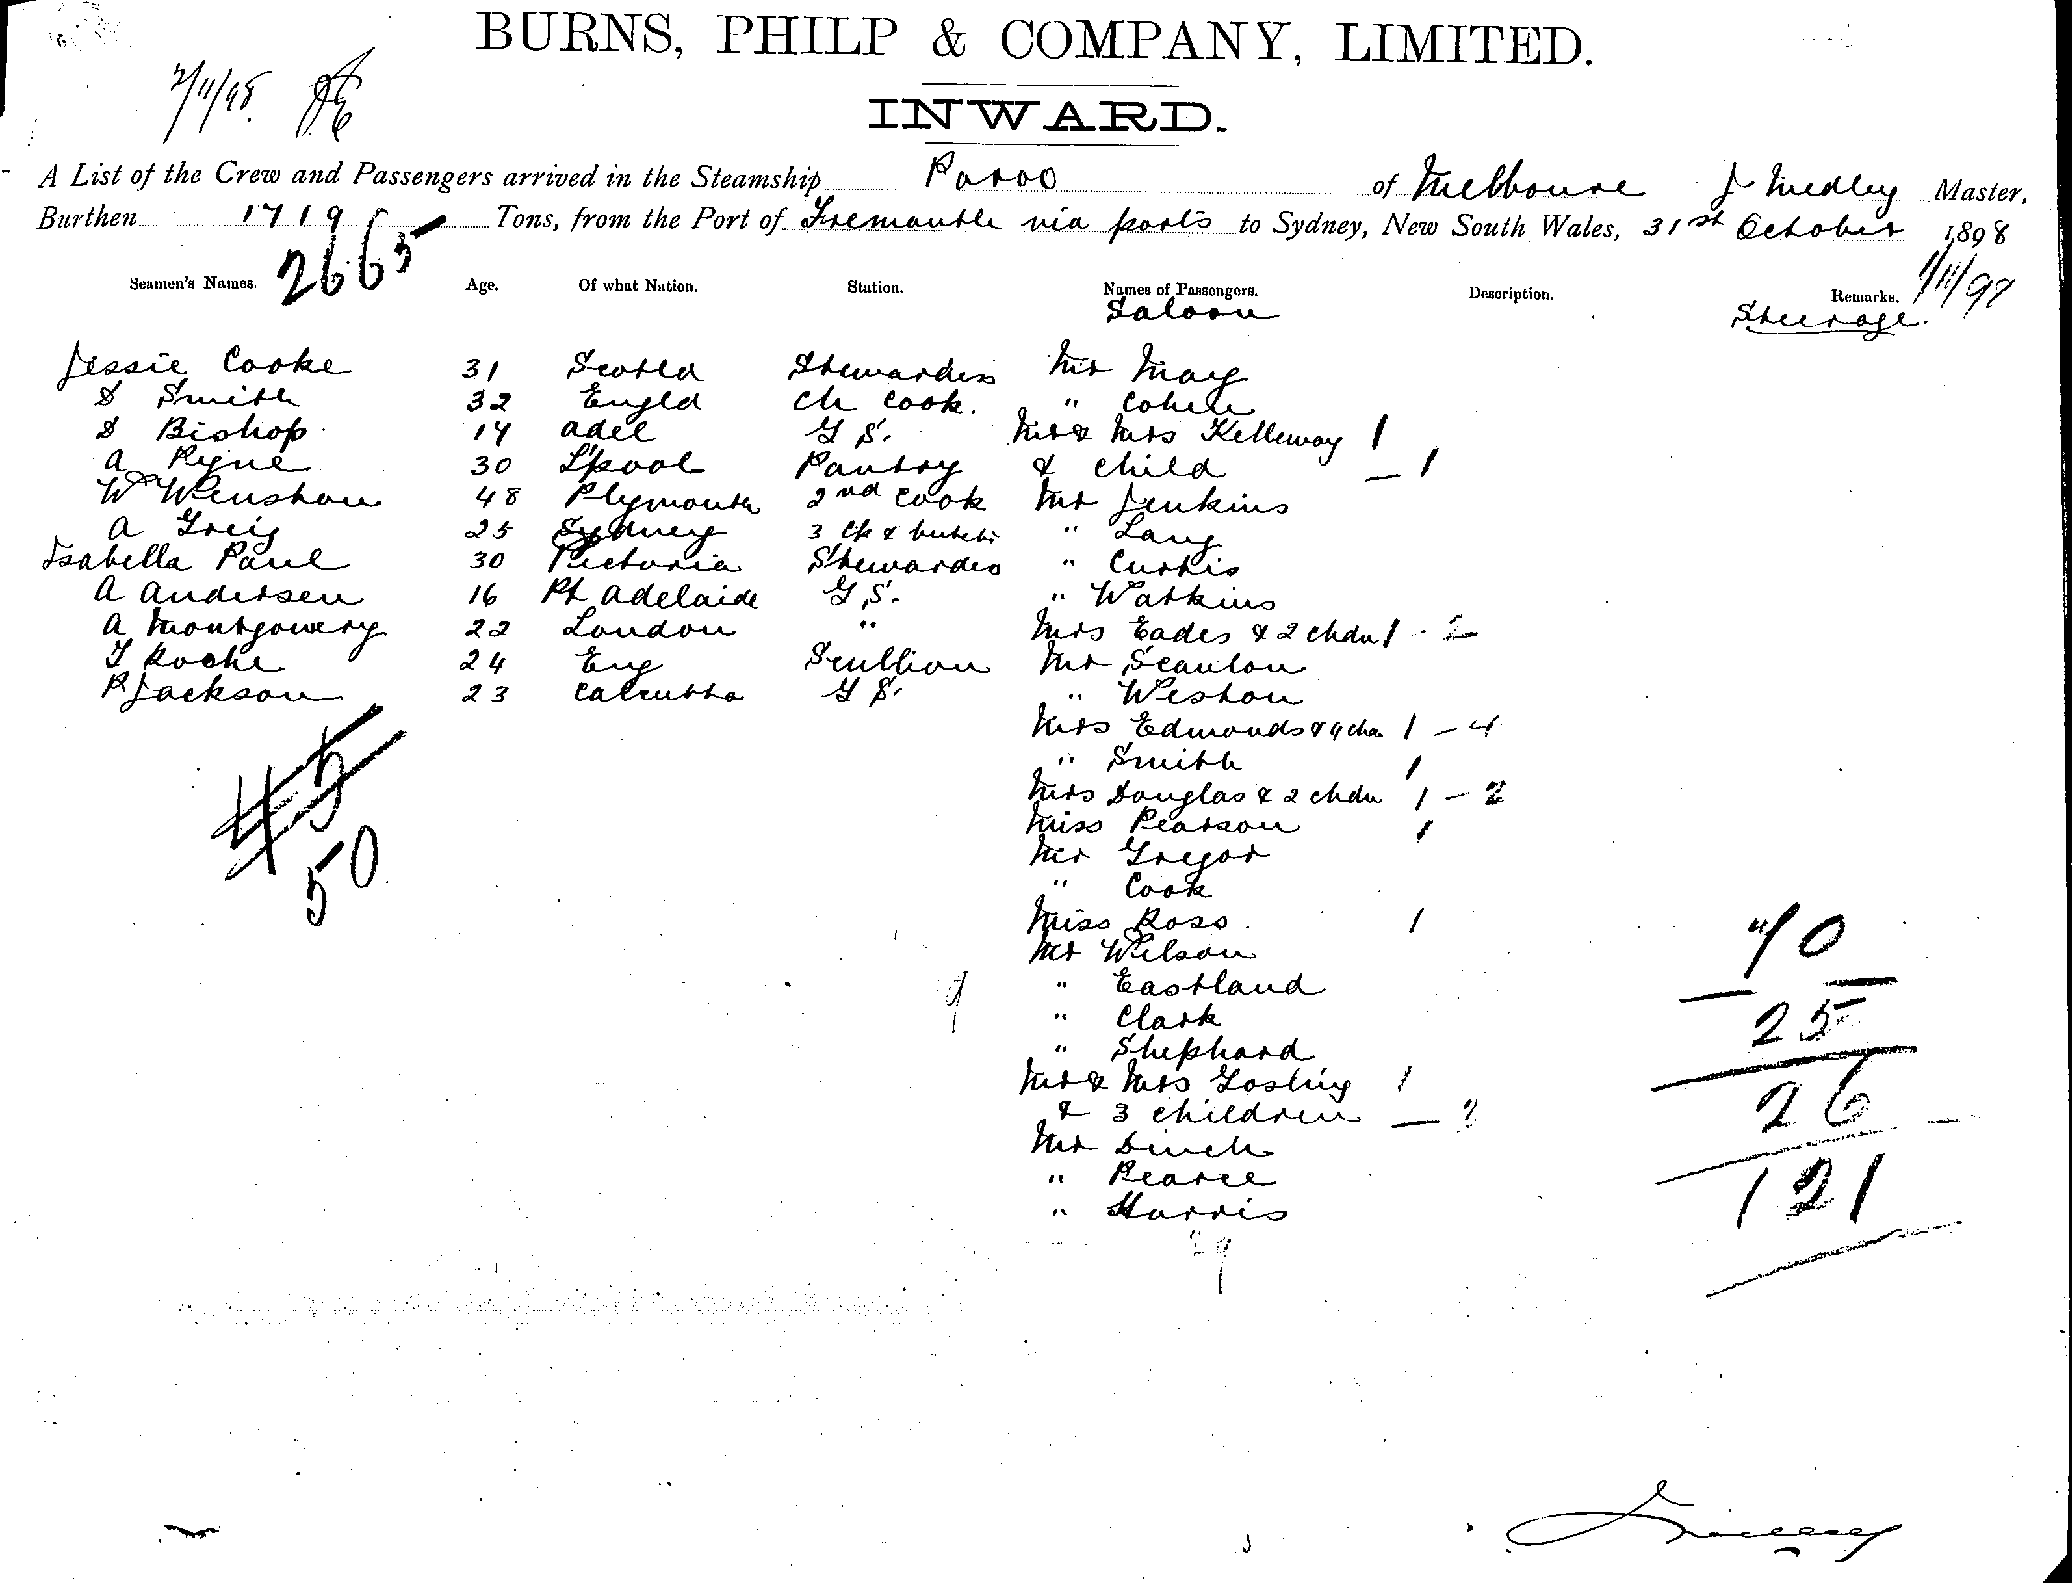 BURNS, PHILP & COMPANY, LIMITED.
2/11/98.
INWARD.
A List of the Crew and Passengers arrived in the Steamship Paroo of Melbourne J Medley Master,
Burthen 1719 Tons, from the Port of Fremantle via ports to Sydney, New South Wales, 31st October 1898
2665
1/11/98
Seamen's Names. Age. Of what Nation. Station. Names of Passengers. Description. Remarks.
Saloon Steerage.
Jessie Cooke 31 Scotld Stewardess Mr May
S Smith 32 Engld Ch Cook. " Cohen
S Bishop 14 Adel G S. Mr & Mrs Kelleway 1
A Ryne 30 L'pool Pantry & child — 1
W Winston 48 Plymouth 2nd Cook Mr Jenkins
A Greig 25 Sydney 3 Ck & butcher " Lang
Isabella Paul 30 Victoria Stewardess " Curtis
A Andersen 16 Pt Adelaide G S. " Watkins
A Montgomery 22 London " Mrs Eades & 2 chdn 1 - 2
T Roche 24 Eng Scullion Mr Scanlon
R Jackson 23 Calcutta G S. " Weston
Mrs Edmonds & 4 chn 1 — 4
" Smith 1
Mrs Douglas & 2 chdn 1 — 2
Miss Pearson 1
45
Mr Gregor
50
" Cook
Miss Ross 1
Mr Wilson
70
" Eastland
" Clark
25
" Shephard
Mr & Mrs Gosling 1
& 3 children — 3
26
Mr Dinch
" Pearce
121
" Harris
29